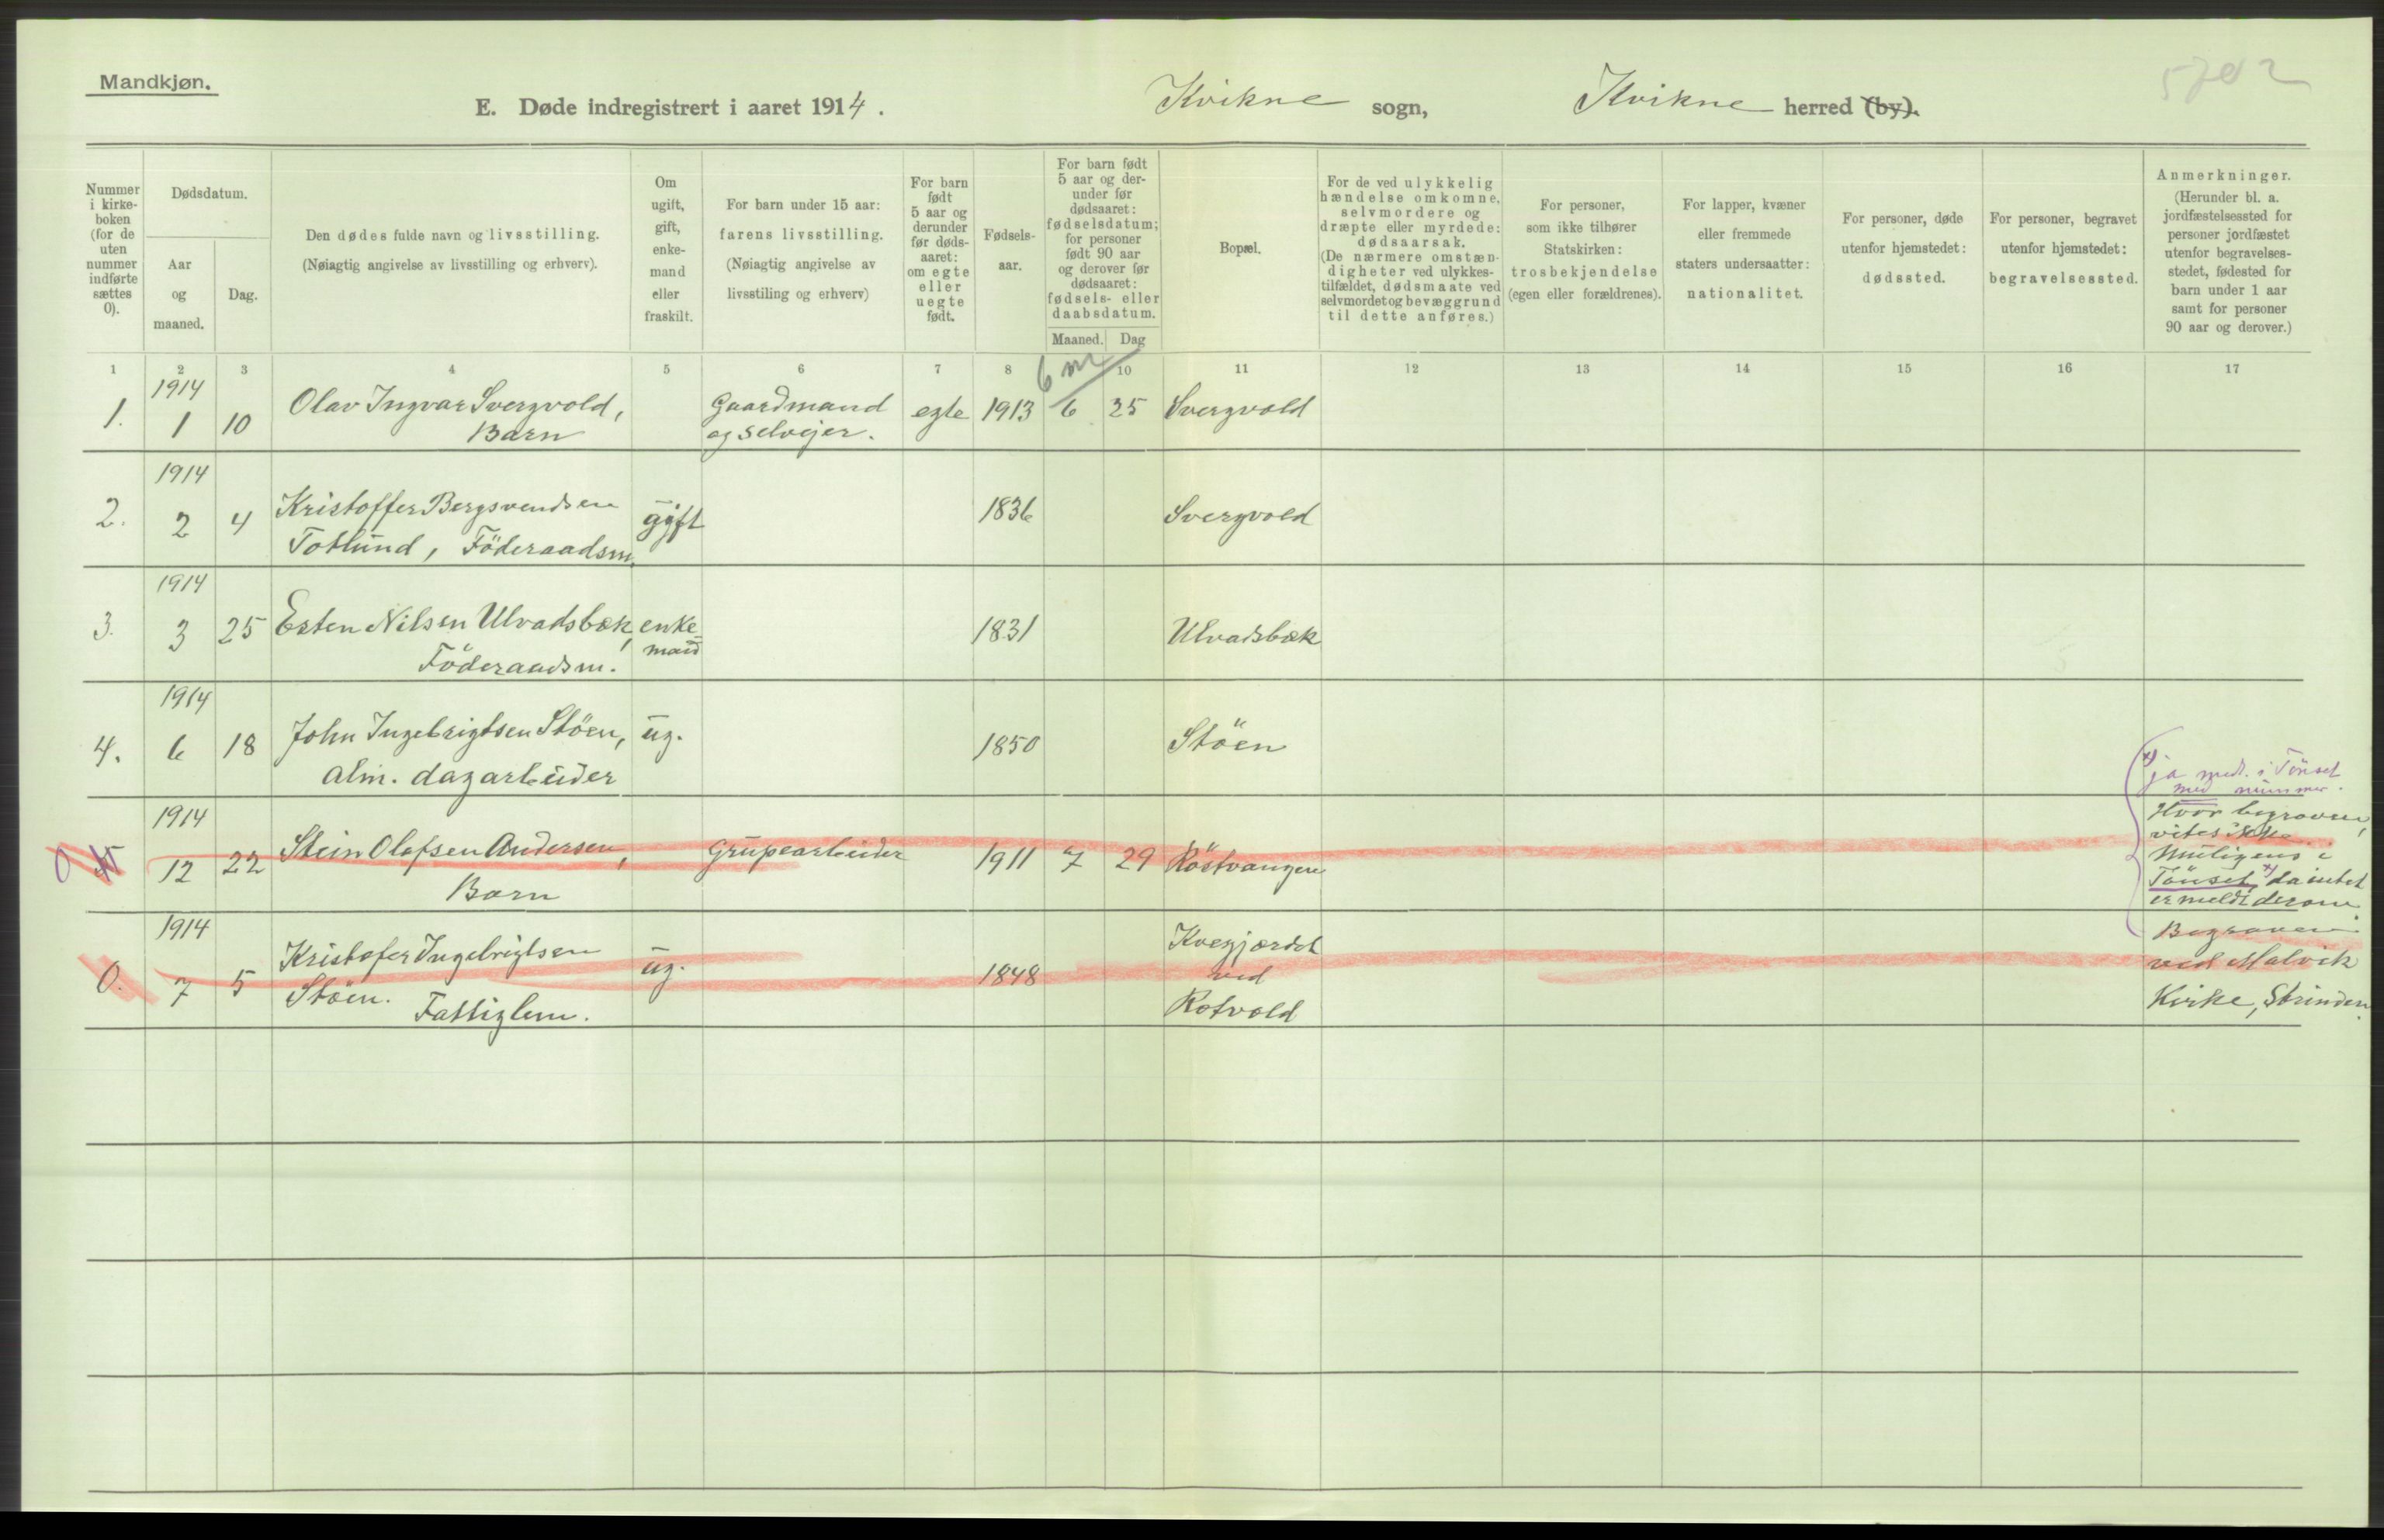 Mandkjøn.
5702
E. Døde indregistrert i aaret 1914. Kvikne sogn, Kvikne herred (by).
Nummer i kirkeboken (for de uten nummer indførte sættes 0).
Dødsdatum.
Aar og maaned.
Dag.
Den dødes fulde navn og livsstilling.
(Nøiagtig angivelse av livsstilling og erhverv).
Om ugift, gift, enkemand eller fraskilt.
For barn under 15 aar:
farens livsstilling.
(Nøiagtig angivelse av livsstiling og erhverv)
For barn født 5 aar og derunder før dødsaaret: om egte eller uegte født.
Fødselsaar.
For barn født 5 aar og derunder før dødsaaret: fødselsdatum; for personer født 90 aar og derover før dødsaaret: fødsels- eller daabsdatum.
Maaned. Dag
Bopæl.
For de ved ulykkelig hændelse omkomne, selvmordere og dræpte eller myrdede: dødsaarsak.
(De nærmere omstændigheter ved ulykkestilfældet, dødsmaate ved selvmordet og bevæggrund til dette anføres.)
For personer, som ikke tilhører Statskirken: trosbekjendelse (egen eller forældrenes).
For lapper, kvæner eller fremmede staters undersaatter: nationalitet.
For personer, døde utenfor hjemstedet: dødssted.
For personer, begravet utenfor hjemstedet: begravelsessted.
Anmerkninger.
(Herunder bl. a. jordfæstelsessted for personer jordfæstet utenfor begravelsesstedet, fødested for barn under 1 aar samt for personer 90 aar og derover.)
1 2 3 4 5 6 7 8 10 11 12 13 14 15 16 17
6 m
1914
1. 1 10 Olav Ingvar Svergvold, Gaardmand egte 1913 6 25 Svergvold
Barn og selvejer.
1914
2. 2 4 Kristoffer Bergsvendsen gift 1836 Svergvold
Totlund, Föderaadsm.
1914
3. 3 25 Esten Nilsen Ulvadsbæk, enke- 1831 Ulvadsbæk
Föderaadsm. mand
1914
4. 6 18 John Ingebrigtsen Stöen, ug. 1850 Stöen
alm. dagarbeider
x) ja medt. i Tönset
med nummer.
1914
0 5 12 22 Stein Olafsen Andersen, Grubearbeider 1911 7 29 Röstvangen
Barn
Hvor begraven,
vites ikke.
Muligens i
Tönset, x) da intet
er meldt derom.
1914
0. 7 5 Kristofer Ingebrigtsen ug. 1848 Kvegjordet
Stöen. Fattiglem. ved
Rotvold
Begraven
ved Malvik
Kirke, Strinden.